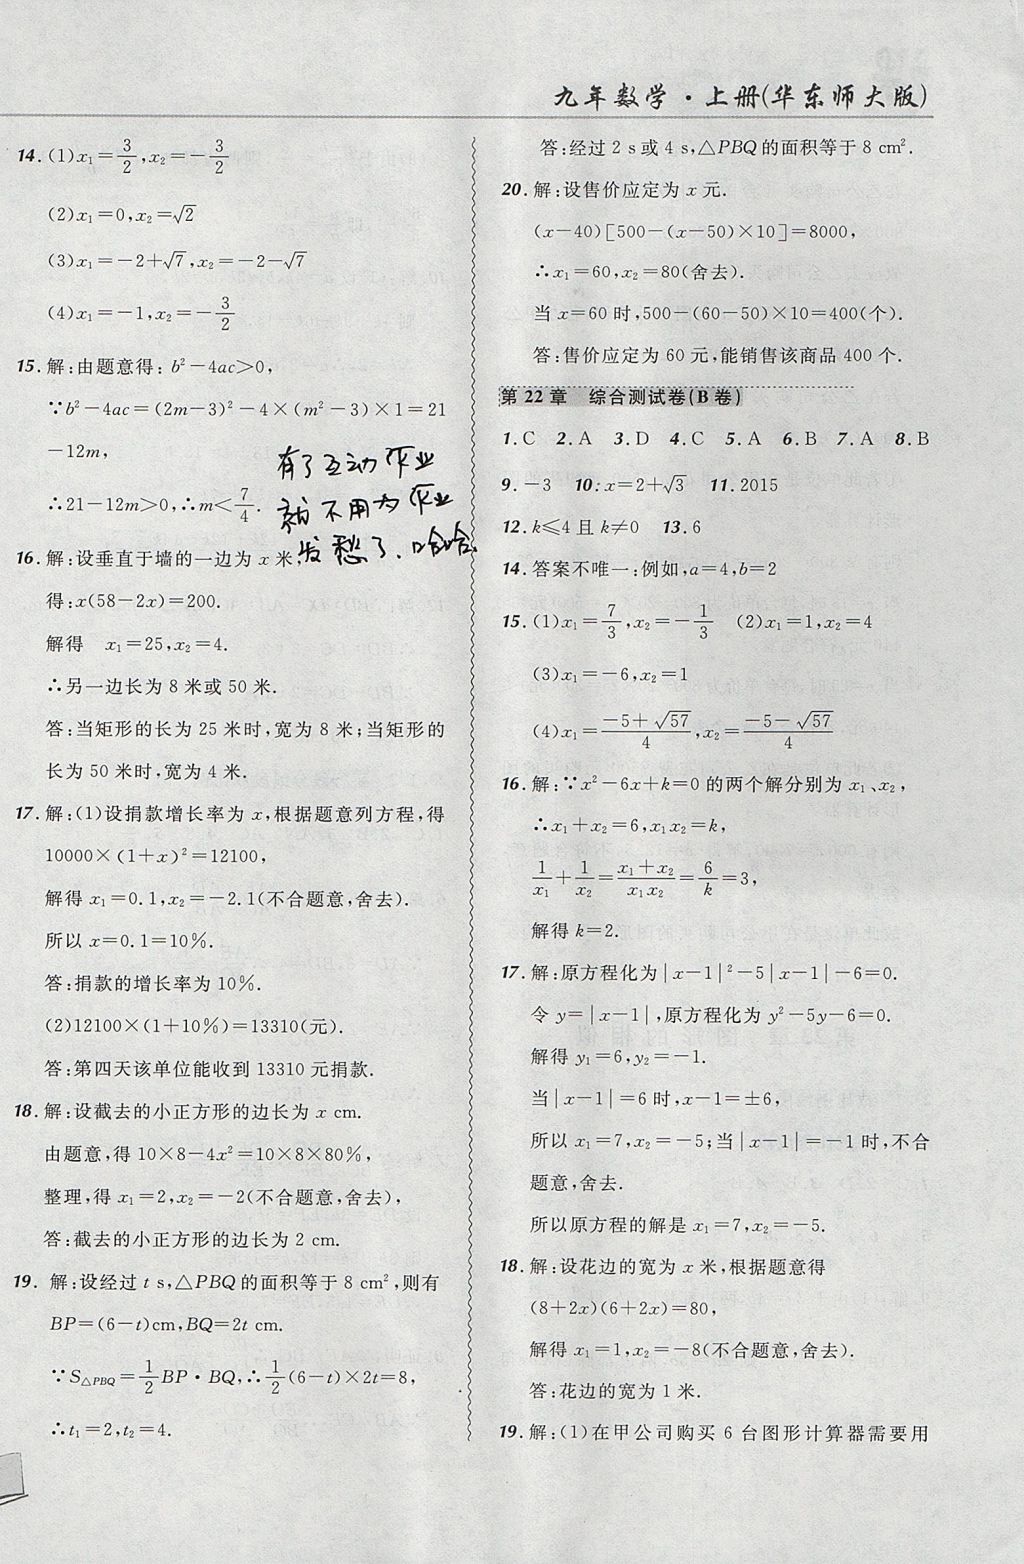 九年数学·上册(华东师大版)
14.(1)x₁=3/2,x₂=-3/2
(2)x₁=0,x₂=√2
(3)x₁=-2+√7,x₂=-2-√7
(4)x₁=-1,x₂=-3/2
15.解:由题意得:b²-4ac>0,
∵b²-4ac=(2m-3)²-4×(m²-3)×1=21
-12m,
∴21-12m>0,∴m<7/4.
有了互动作业
就不用为作业
发愁了.哈哈.
16.解:设垂直于墙的一边为 x 米,
得:x(58-2x)=200.
解得 x₁=25,x₂=4.
∴另一边长为 8 米或 50 米.
答:当矩形的长为 25 米时,宽为 8 米;当矩形的
长为 50 米时,宽为 4 米.
17.解:(1)设捐款增长率为 x,根据题意列方程,得
10000×(1+x)²=12100,
解得 x₁=0.1,x₂=-2.1(不合题意,舍去).
所以 x=0.1=10%.
答:捐款的增长率为 10%.
(2)12100×(1+10%)=13310(元).
答:第四天该单位能收到 13310 元捐款.
18.解:设截去的小正方形的边长为 x cm.
由题意,得 10×8-4x²=10×8×80%,
整理,得 x₁=2,x₂=-2(不合题意,舍去),
答:截去的小正方形的边长为 2 cm.
19. 解:设经过 t s,△PBQ 的面积等于 8 cm²,则有
BP=(6-t)cm,BQ=2t cm.
∵S△PBQ=1/2BP·BQ,∴1/2(6-t)×2t=8,
∴t₁=2,t₂=4.
答:经过 2 s 或 4 s,△PBQ 的面积等于 8 cm².
20.解:设售价应定为 x 元.
(x-40)[500-(x-50)×10]=8000,
∴x₁=60,x₂=80(舍去).
当 x=60 时,500-(60-50)×10=400(个).
答:售价应定为 60 元,能销售该商品 400 个.
第 22 章 综合测试卷(B 卷)
1.C 2.A 3.D 4.C 5.A 6.B 7.A 8.B
9.-3 10.x=2±√3 11.2015
12.k≤4且 k≠0 13.6
14.答案不唯一:例如,a=4,b=2
15.(1)x₁=7/3,x₂=-1/3 (2)x₁=1,x₂=4
(3)x₁=-6,x₂=1
(4)x₁=(-5+√57)/4,x₂=(-5-√57)/4
16.解:∵x²-6x+k=0 的两个解分别为 x₁、x₂,
∴x₁+x₂=6,x₁x₂=k,
1/x₁+1/x₂=(x₁+x₂)/(x₁x₂)=6/k=3,
解得 k=2.
17.解:原方程化为|x-1|²-5|x-1|-6=0.
令 y=|x-1|,原方程化为 y²-5y-6=0.
解得 y₁=6,y₂=-1.
当|x-1|=6 时,x-1=±6,
所以 x₁=7,x₂=-5;当|x-1|=-1 时,不合
题意,舍去.
所以原方程的解是 x₁=7,x₂=-5.
18.解:设花边的宽为 x 米,根据题意得
(8+2x)(6+2x)=80,
解得 x₁=1,x₂=-8(不合题意,舍去).
答:花边的宽为 1 米.
19.解:(1)在甲公司购买 6 台图形计算器需要用